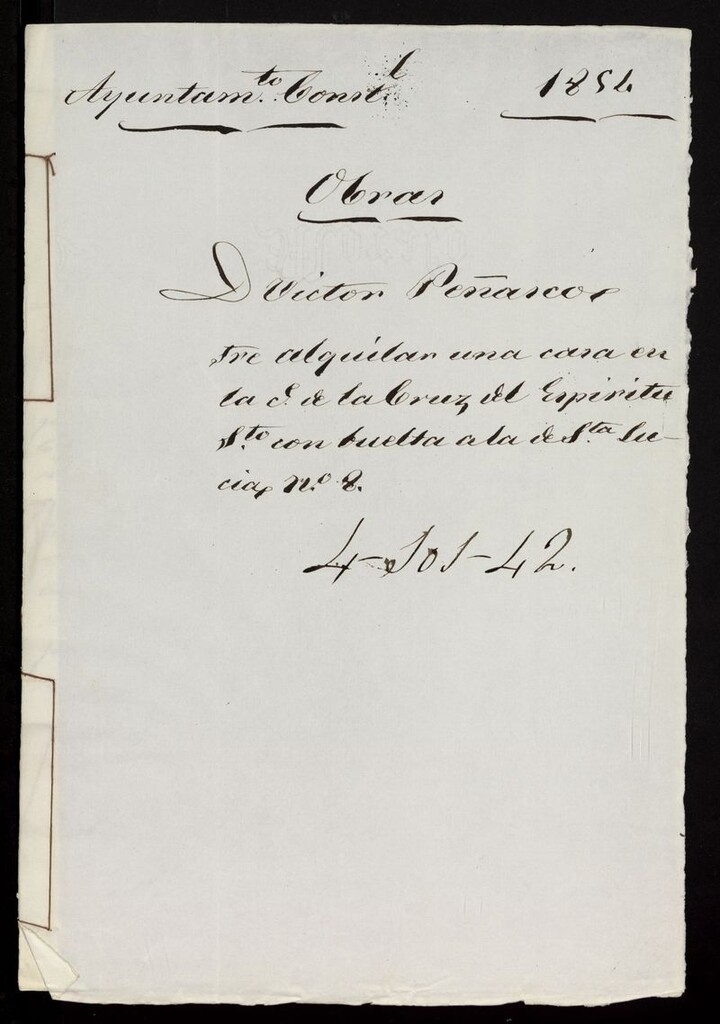 Ayuntam.to Const.l 1854
Obras
D Victor Peñasco,
sre alquilar una casa en
la C. de la Cruz, del Espiritu
S.to con buelta a la de S.ta Lu-
cia, n.o 8.
4-101-42.